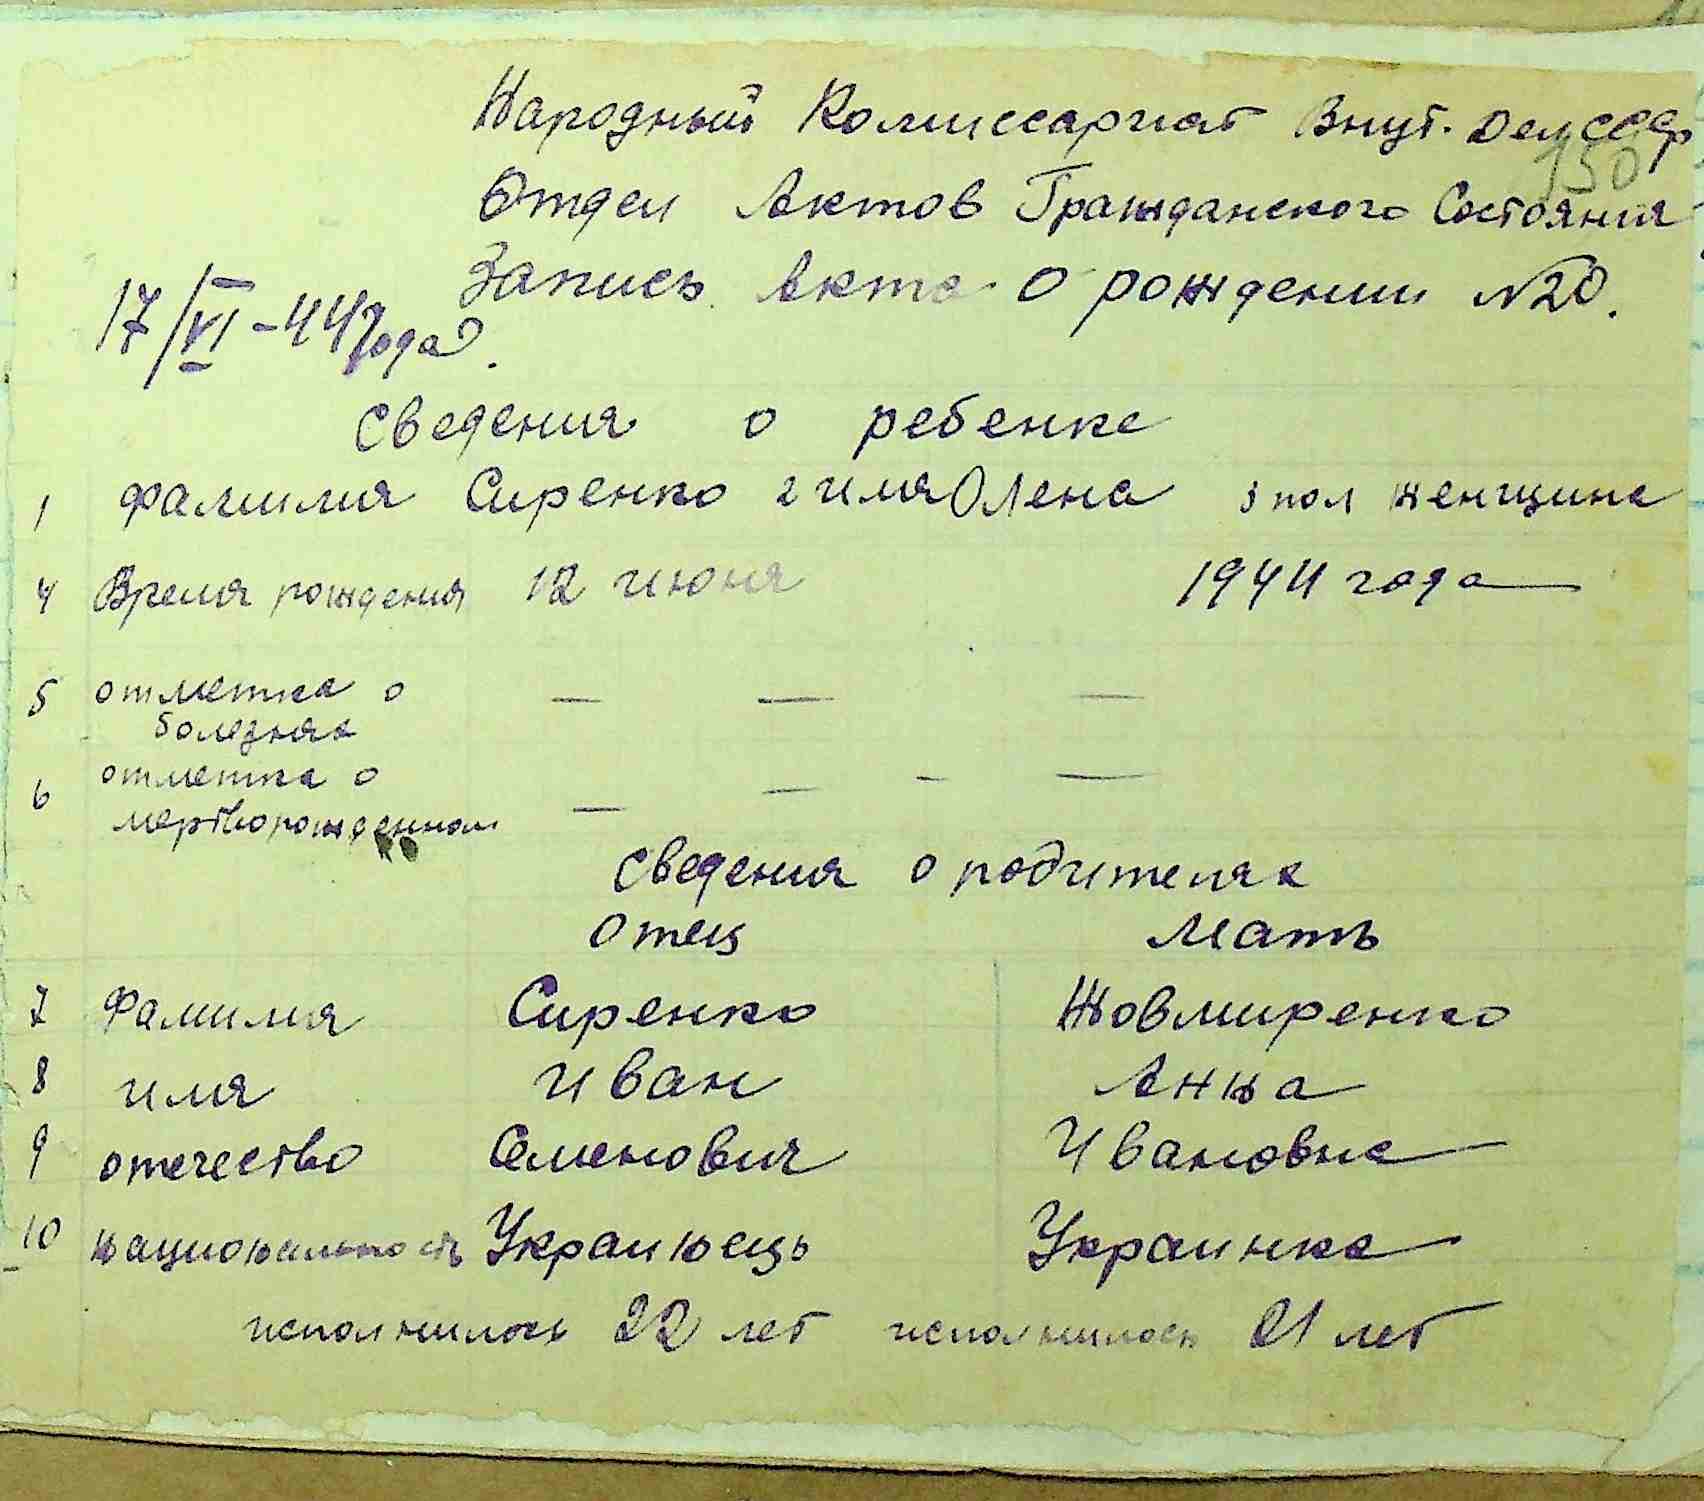 Народный Комиссариат Внут. Дел СССР
150
Отдел Актов Гражданского Состояния
Запись Акта О рождении №20.
17/VI-44 года.
Сведения о ребенке
1 Фамилия Сиренко 2 имя Олена 3 пол женщина
4 Время рождения 12 июня 1944 года
5 отметка о — — —
болезнях
6 отметка о — — - —
мертворожденном
Сведения о родителях
Отец Мать
7 Фамилия Сиренко Жовмиренко
8 имя Иван Анна
9 отечество Семенович Ивановна
10 национальность Украинець Украинка
исполнилось 22 лет исполнилось 21 лет